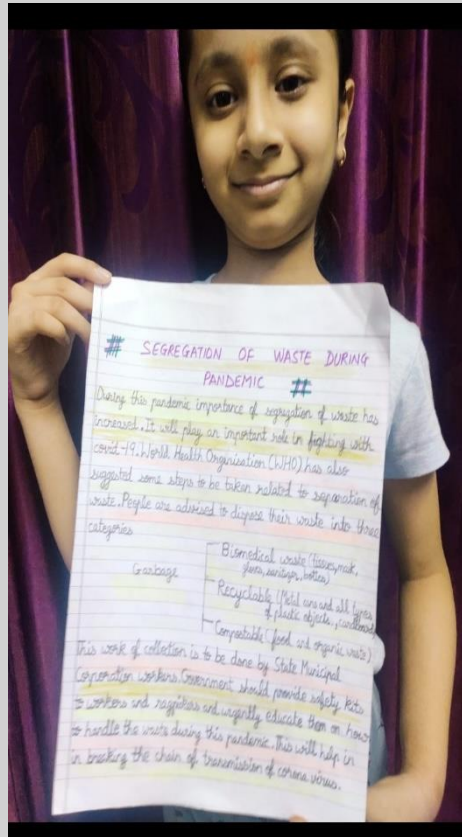 # SEGREGATION OF WASTE DURING
PANDEMIC #
During this pandemic importance of segregation of waste has
increased. It will play an important role in fighting with
covid-19. World Health Organisation (WHO) has also
suggested some steps to be taken related to separation of
waste. People are advised to dispose their waste into three
categories
Garbage
Biomedical waste (tissues, mask,
gloves, sanitizer, bottles)
Recyclable (Metal cans and all types
of plastic objects, cardboard)
Compostable (food and organic waste)
This work of collection is to be done by State Municipal
Corporation workers. Government should provide safety kits
to workers and ragpikers and urgently educate them on how
to handle the waste during this pandemic. This will help in
in breaking the chain of transmission of corona virus.